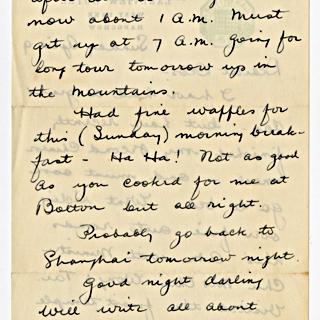 now about 1 A.M. Must
get up at 7 A.M. going for
long tour tomorrow up in
the Mountains.
Had fine waffles for
this (Sunday) morning break-
fast - Ha Ha! Not as good
as you cooked for me at
Bolton but all right.
Probably go back to
Shanghai tomorrow night.
Good night darling
will write all about